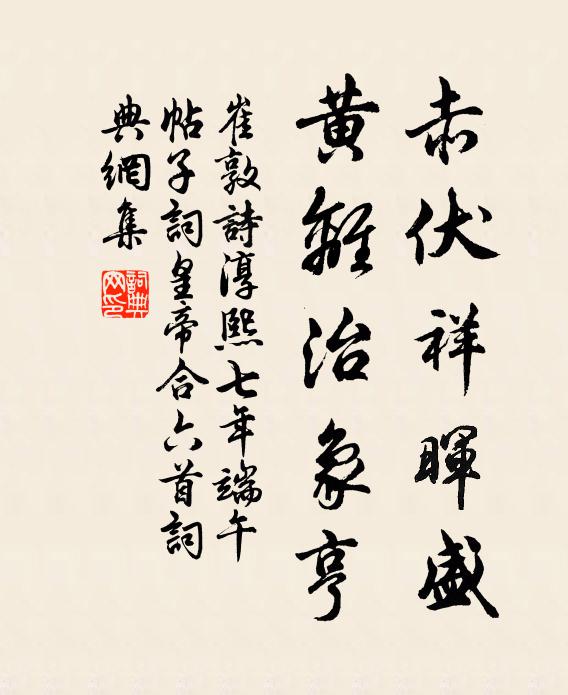 赤伏祥暉盛
黄離治象亨
崔敦詩淳熙七年端午
帖子詞皇帝合六首詞
典網集
詞典
网印